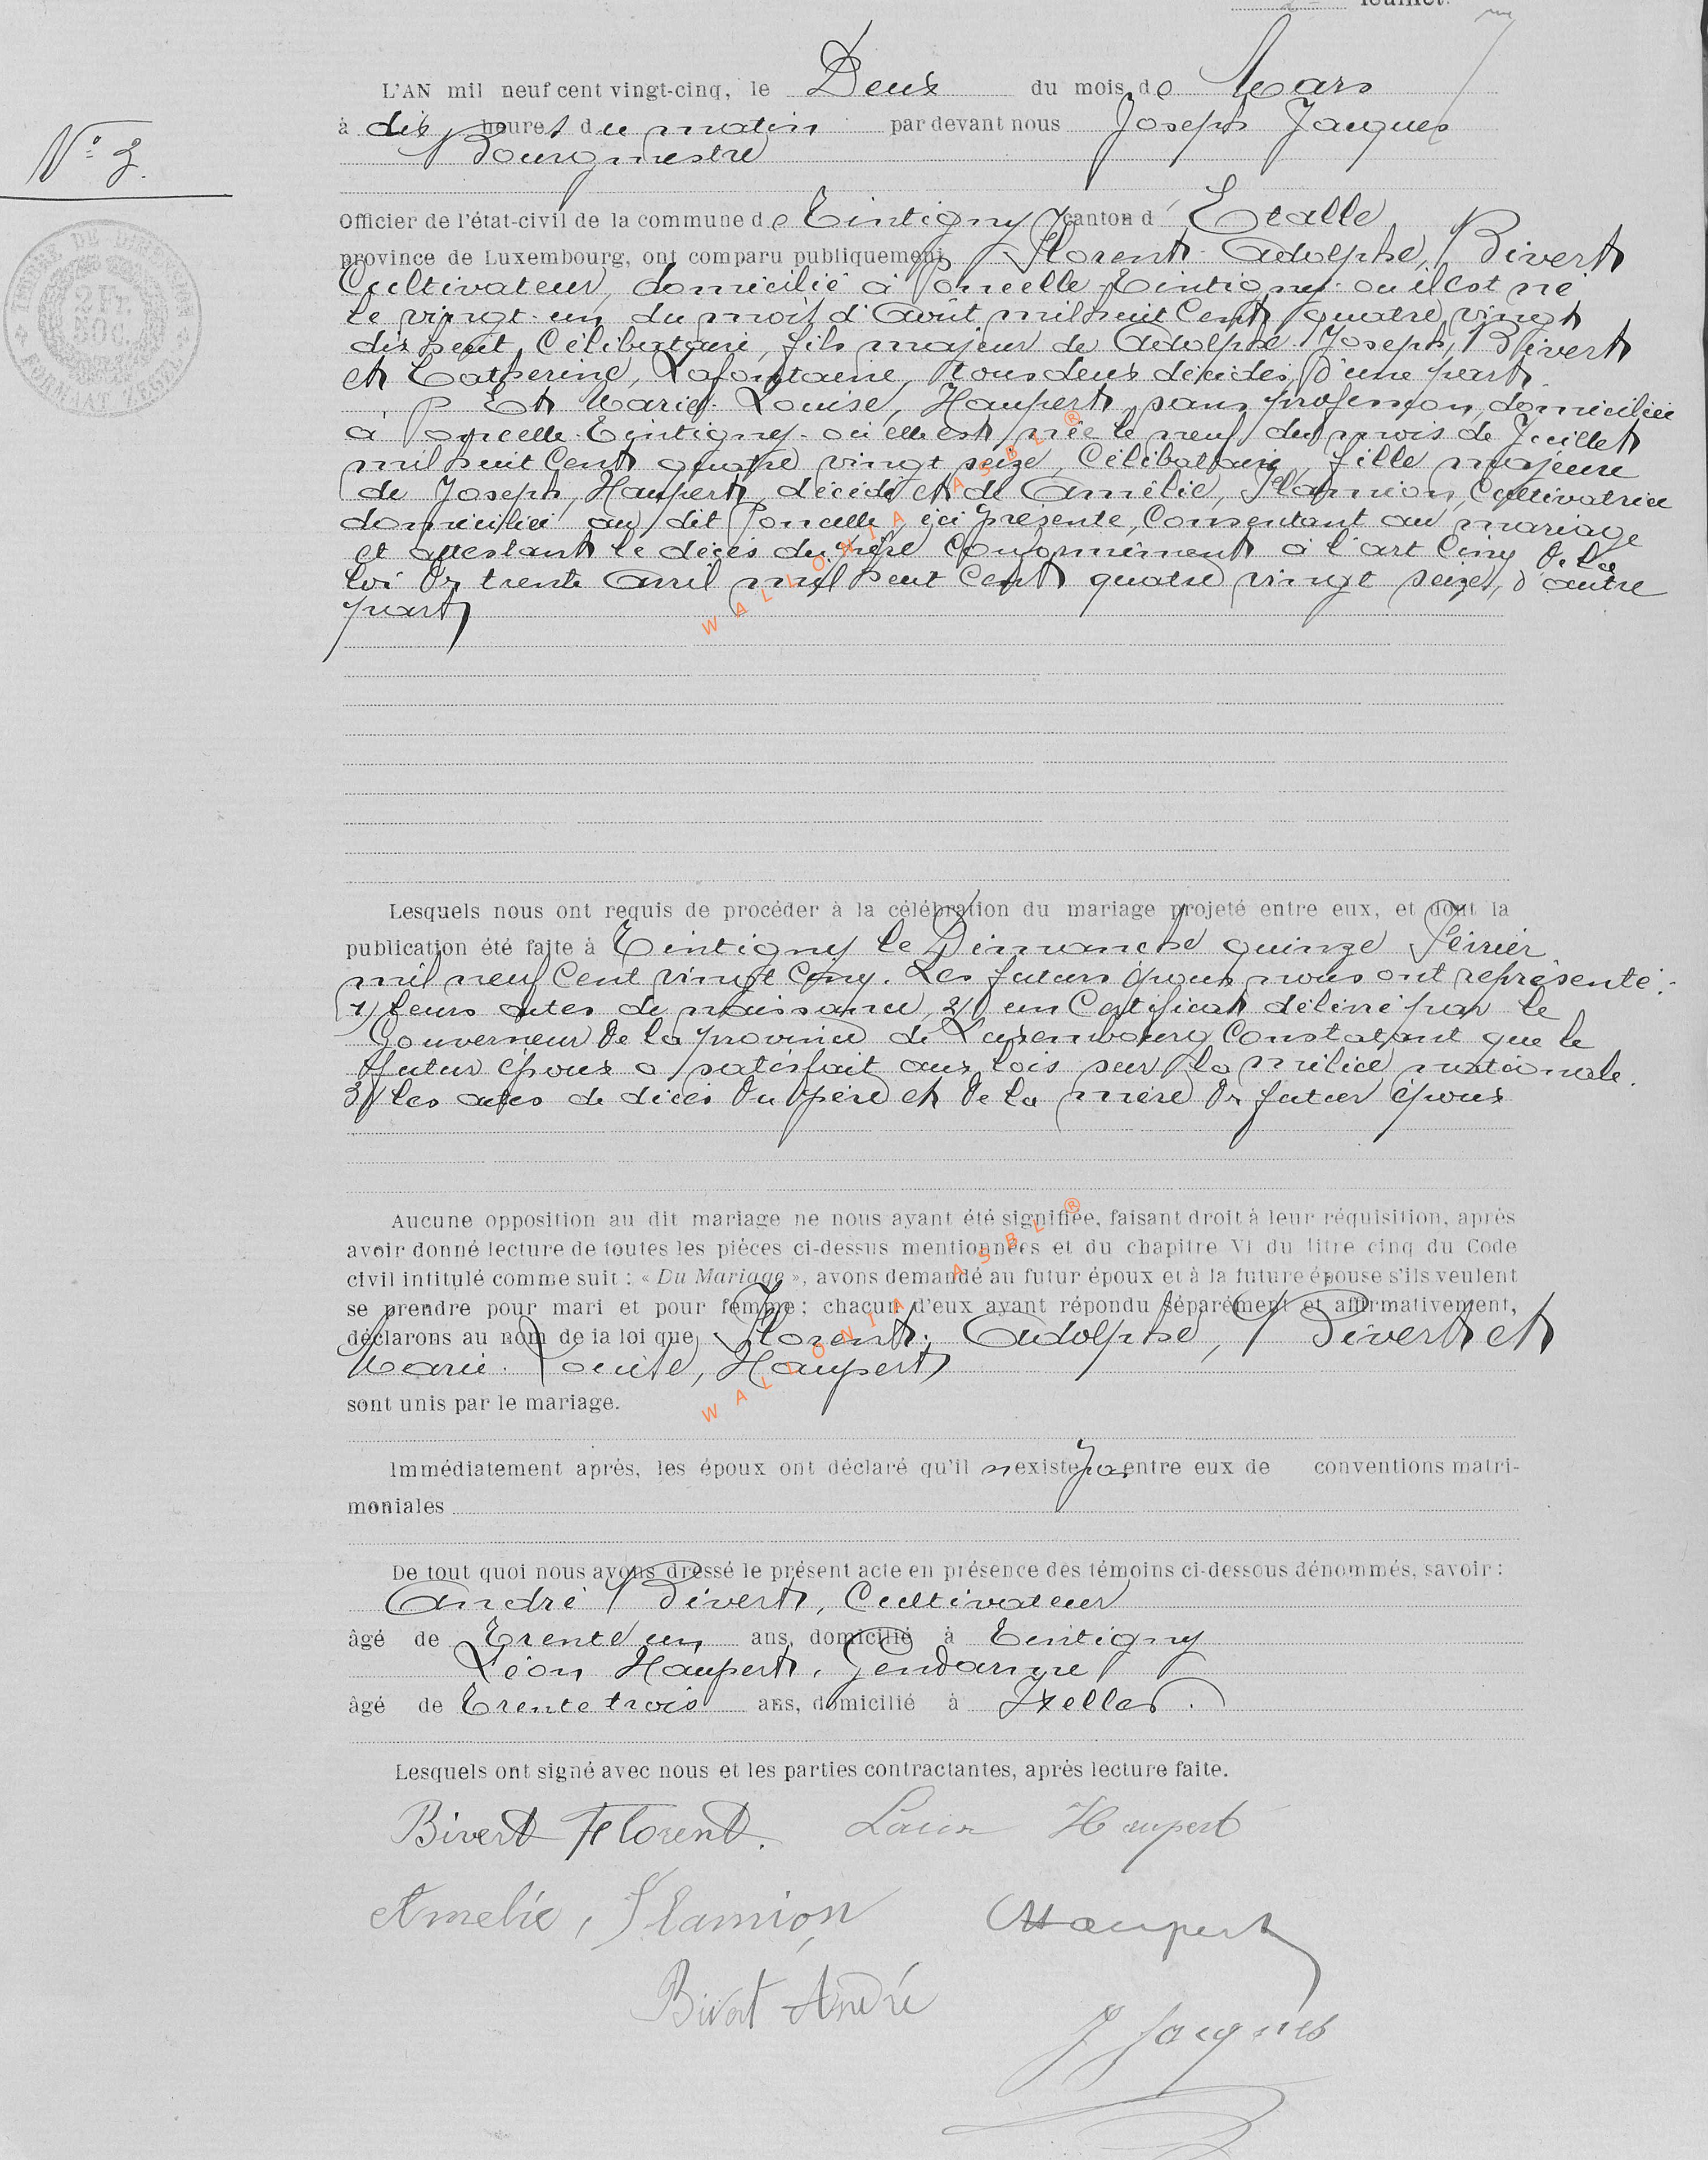 feuillet.
L'AN mil neuf cent vingt-cinq, le Deux du mois de Mars
à dix heures du matin par devant nous Joseph Jacques
Bourgmestre
N° 3.
Officier de l'état-civil de la commune de Tintigny canton d'Etalle
province de Luxembourg, ont comparu publiquement Florent Adolphe, Bivert
Cultivateur, domicilié à Poncelle-Tintigny où il est né
le vingt-un du mois d'Août mil huit Cent quatre vingt
dix sept, Célibataire, fils majeur de Adolphe Joseph, Bivert
et Catherine, Lafontaine, tous deux décédés, d'une part
Et Marie-Louise, Haupert, sans profession, domiciliée
à Poncelle-Tintigny-où elle est née le neuf du mois de Juillet
mil huit Cent quatre vingt seize, Célibataire, fille majeure
de Joseph, Haupert, décédé et de Amélie, Flamion, Cultivatrice
domiciliée au dit Poncelle, ici présente, Consentant au mariage
et attestant le décès du père Conformément à l'art Cinq de la
loi du trente Avril mil huit Cent quatre vingt seize, d'autre
part
Lesquels nous ont requis de procéder à la célébration du mariage projeté entre eux, et dont la
publication été faite à Tintigny le Dimanche quinze Février
mil neuf Cent vingt Cinq. Les futurs époux nous ont représenté :
1) leurs actes de naissance, 2) un Certificat délivré par le
Gouverneur de la province de Luxembourg Constatant que le
futur époux a satisfait aux lois sur la milice nationale.
3) les actes de décès du père et de la mère du futur époux
Aucune opposition au dit mariage ne nous ayant été signifiée, faisant droit à leur réquisition, après
avoir donné lecture de toutes les pièces ci-dessus mentionnées et du chapitre VI du titre cinq du Code
civil intitulé comme suit : « Du Mariage », avons demandé au futur époux et à la future épouse s'ils veulent
se prendre pour mari et pour femme : chacun d'eux ayant répondu séparément et affirmativement,
déclarons au nom de la loi que Florent-Adolphe, Bivert et
Marie-Louise, Haupert
sont unis par le mariage.
Immédiatement après, les époux ont déclaré qu'il n'existe pas entre eux de conventions matri-
moniales
De tout quoi nous avons dressé le présent acte en présence des témoins ci-dessous dénommés, savoir :
André Bivert, Cultivateur
âgé de Trente un ans, domicilié à Tintigny
Léon Haupert, Gendarme
âgé de Trente trois ans, domicilié à Ixelles.
Lesquels ont signé avec nous et les parties contractantes, après lecture faite.
Bivert Florent. Haupert
Amelie, Flamion Haupert
Bivert André
J Jacques
WALLONIA ASBL ®
WALLONIA ASBL ®